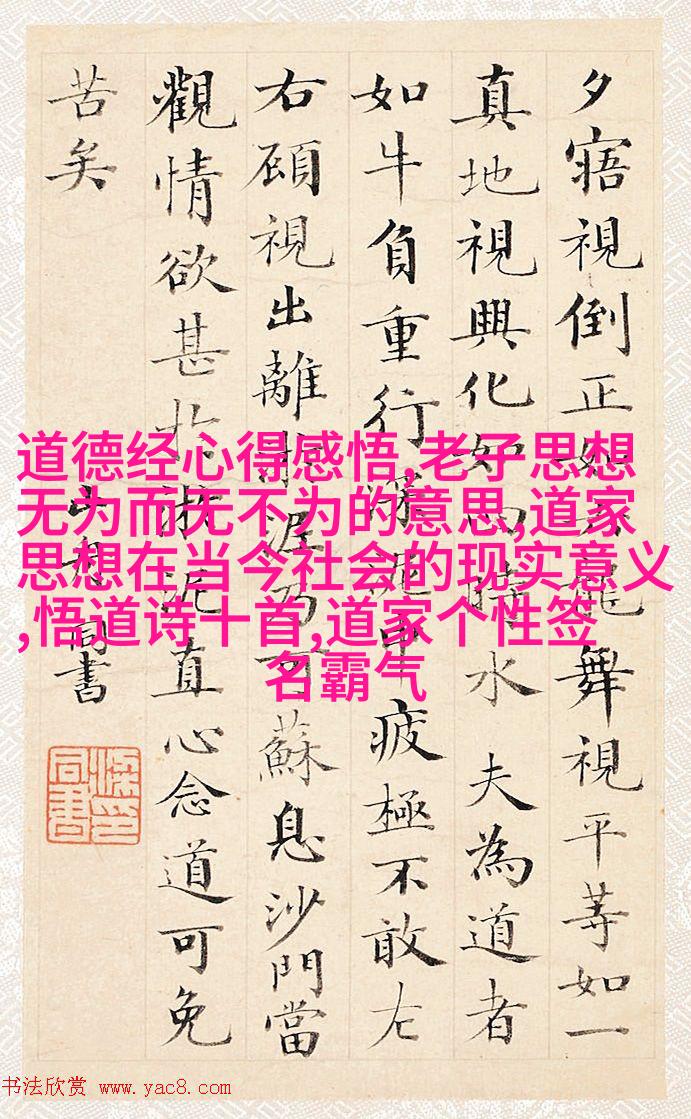 夕寤視倒正如六龍舞視平等如一
真地視興化如四時木夫為道者
如牛負重行深泥中疲極不敢左
右顧視出離淤泥乃可蘇息沙門當
觀情欲甚於淤泥直心念道可免
苦矣
山舟同書
梁印同書
道德经心得感悟,老子思想
无为而无不为的意思,道家
思想在当今社会的现实意义
,悟道诗十首,道家个性签
名霸气
书法欣赏 www.yac8.com